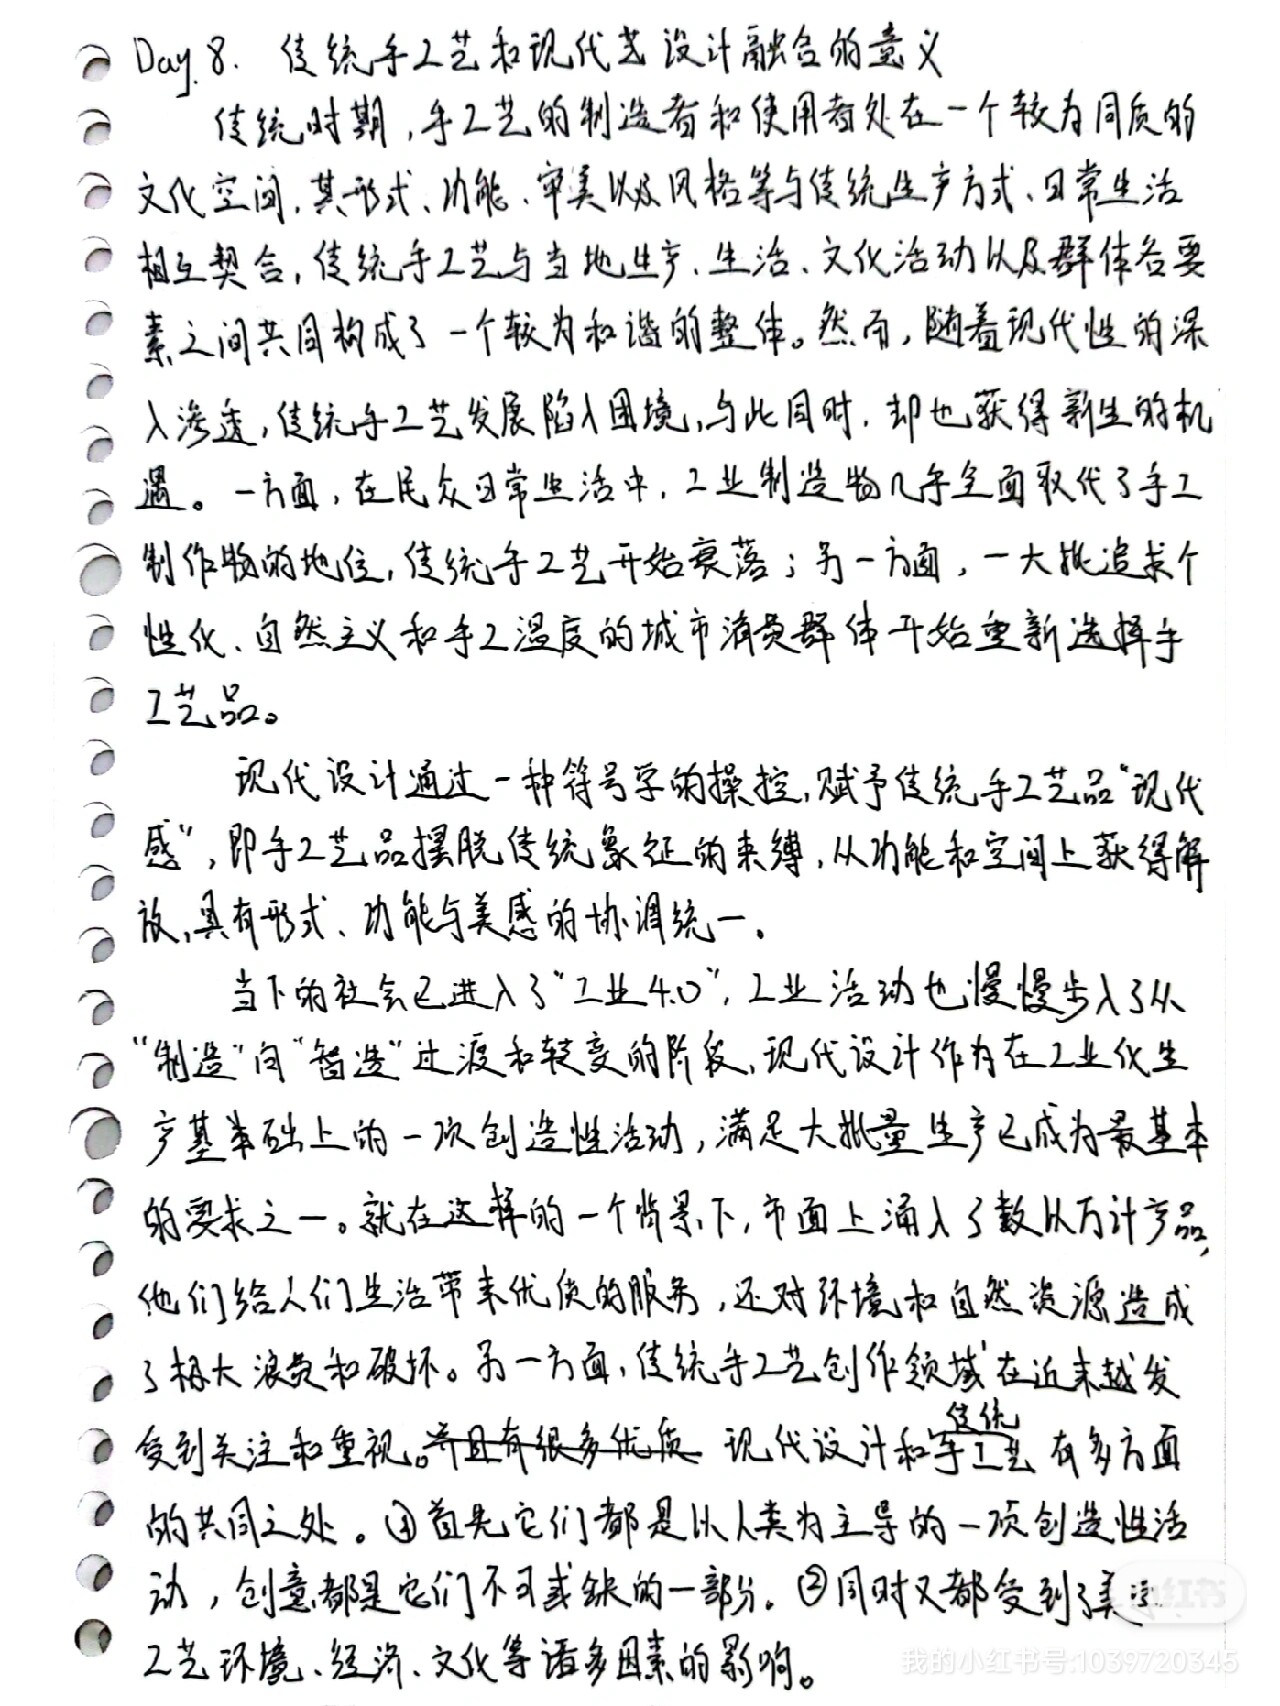 Day.8. 传统手工艺和现代艺设计融合的意义
传统时期,手工艺的制造者和使用者处在一个较为同质的
文化空间、其形式、功能、审美以及风格等与传统生产方式、日常生活
相互契合,传统手工艺与当地生产、生活、文化活动以及群体各要
素之间共同构成了一个较为和谐的整体。然而,随着现代性的深
入渗透,传统手工艺发展陷入困境,与此同时,却也获得新生的机
遇。一方面,在民众日常生活中,工业制造物几乎全面取代了手工
制作物的地位,传统手工艺开始衰落;另一方面,一大批追求个
性化、自然主义和手工温度的城市消费群体开始重新选择手
工艺品。
现代设计通过一种符号学的操控,赋予传统手工艺品“现代
感”,即手工艺品摆脱传统象征的束缚,从功能和空间上获得解
放,具有形式、功能与美感的协调统一。
当下的社会已进入了“工业4.0”,工业活动也慢慢步入了从
“制造”向“智造”过渡和转变的阶段,现代设计作为在工业化生
产基本础上的一项创造性活动,满足大批量生产已成为最基本
的要求之一。就在这样的一个背景下,市面上涌入了数以万计产品,
他们给人们生活带来优质的服务,还对环境和自然资源造成
了极大浪费和破坏。另一方面,传统手工艺创作领域在近来越发
受到关注和重视。并且有很多优质 现代设计和传统手工艺有多方面
的共同之处。①首先它们都是以人类为主导的一项创造性活
动,创意都是它们不可或缺的一部分。②同时又都受到了美学
工艺环境、经济、文化等诸多因素的影响。
小红书
我的小红书号:1039720345